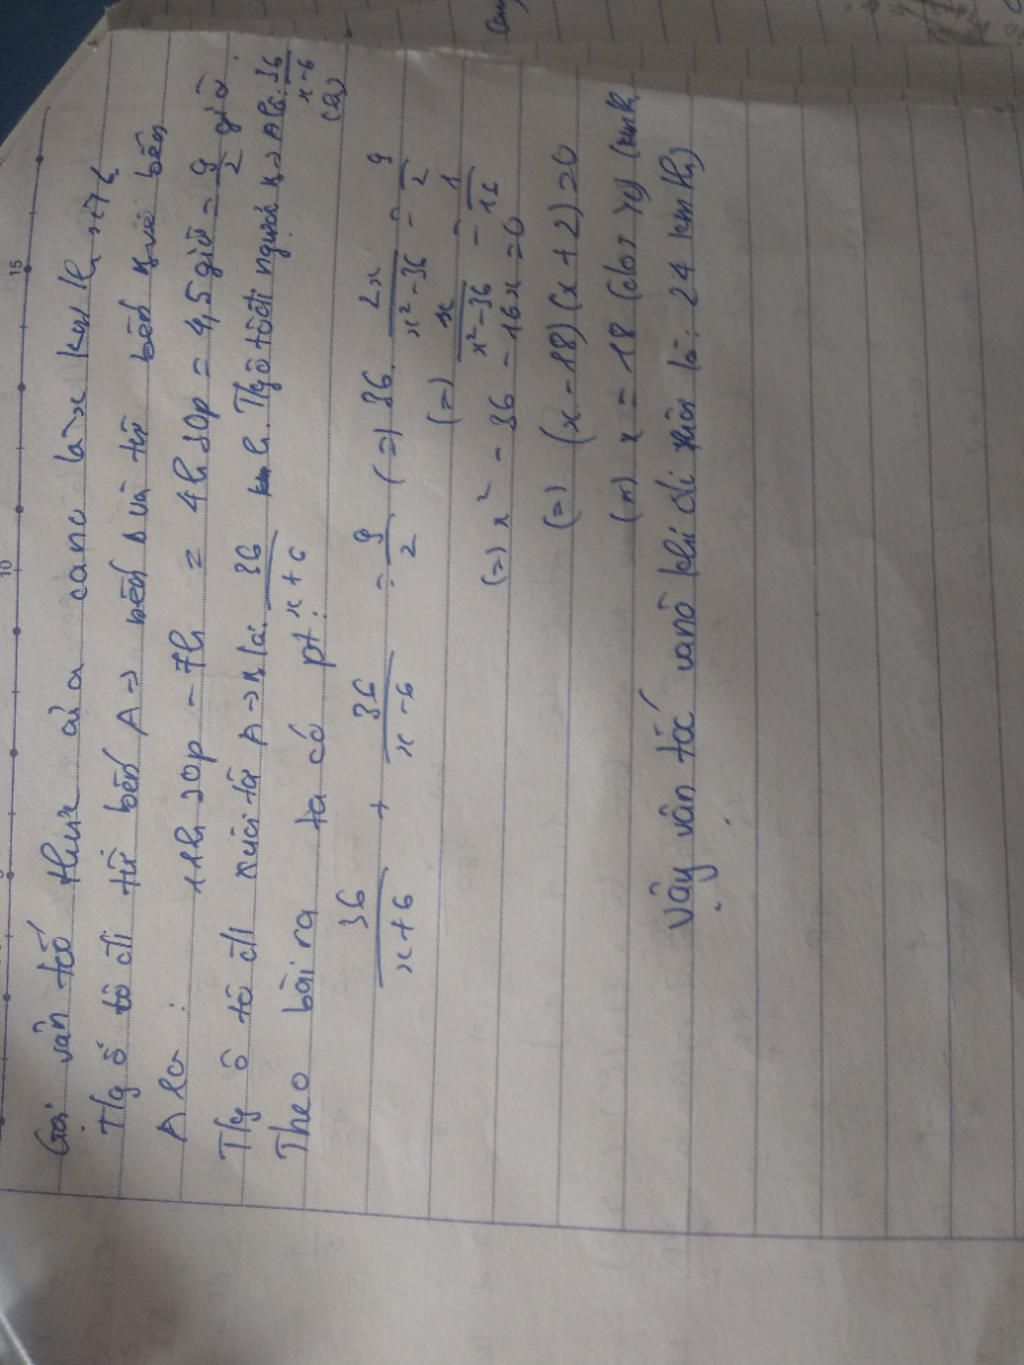 Gọi vận tốc thực của cano là x km/h, x > 6
T/g ô tô đi từ bến A → bến B và từ bến B về bến
A là : 11h30p - 7h = 4h30p = 4,5 giờ = 9/2 giờ.
T/g ô tô đi xuôi từ A → B là: 36/(x+6) h. T/gô tô đi ngược B → A là: 36/(x-6) (h)
Theo bài ra ta có pt:
36/(x+6) + 36/(x-6) = 9/2 (=) 36. 2x/(x²-36) = 9/2
(=) x/(x²-36) = 1/16
(=) x² - 36 - 16x = 0
(=) (x - 18)(x + 2) = 0
(=) x = 18 (do x > 6) (km/h
Vậy vân tốc canô khi đi xuôi là: 24 km/h)